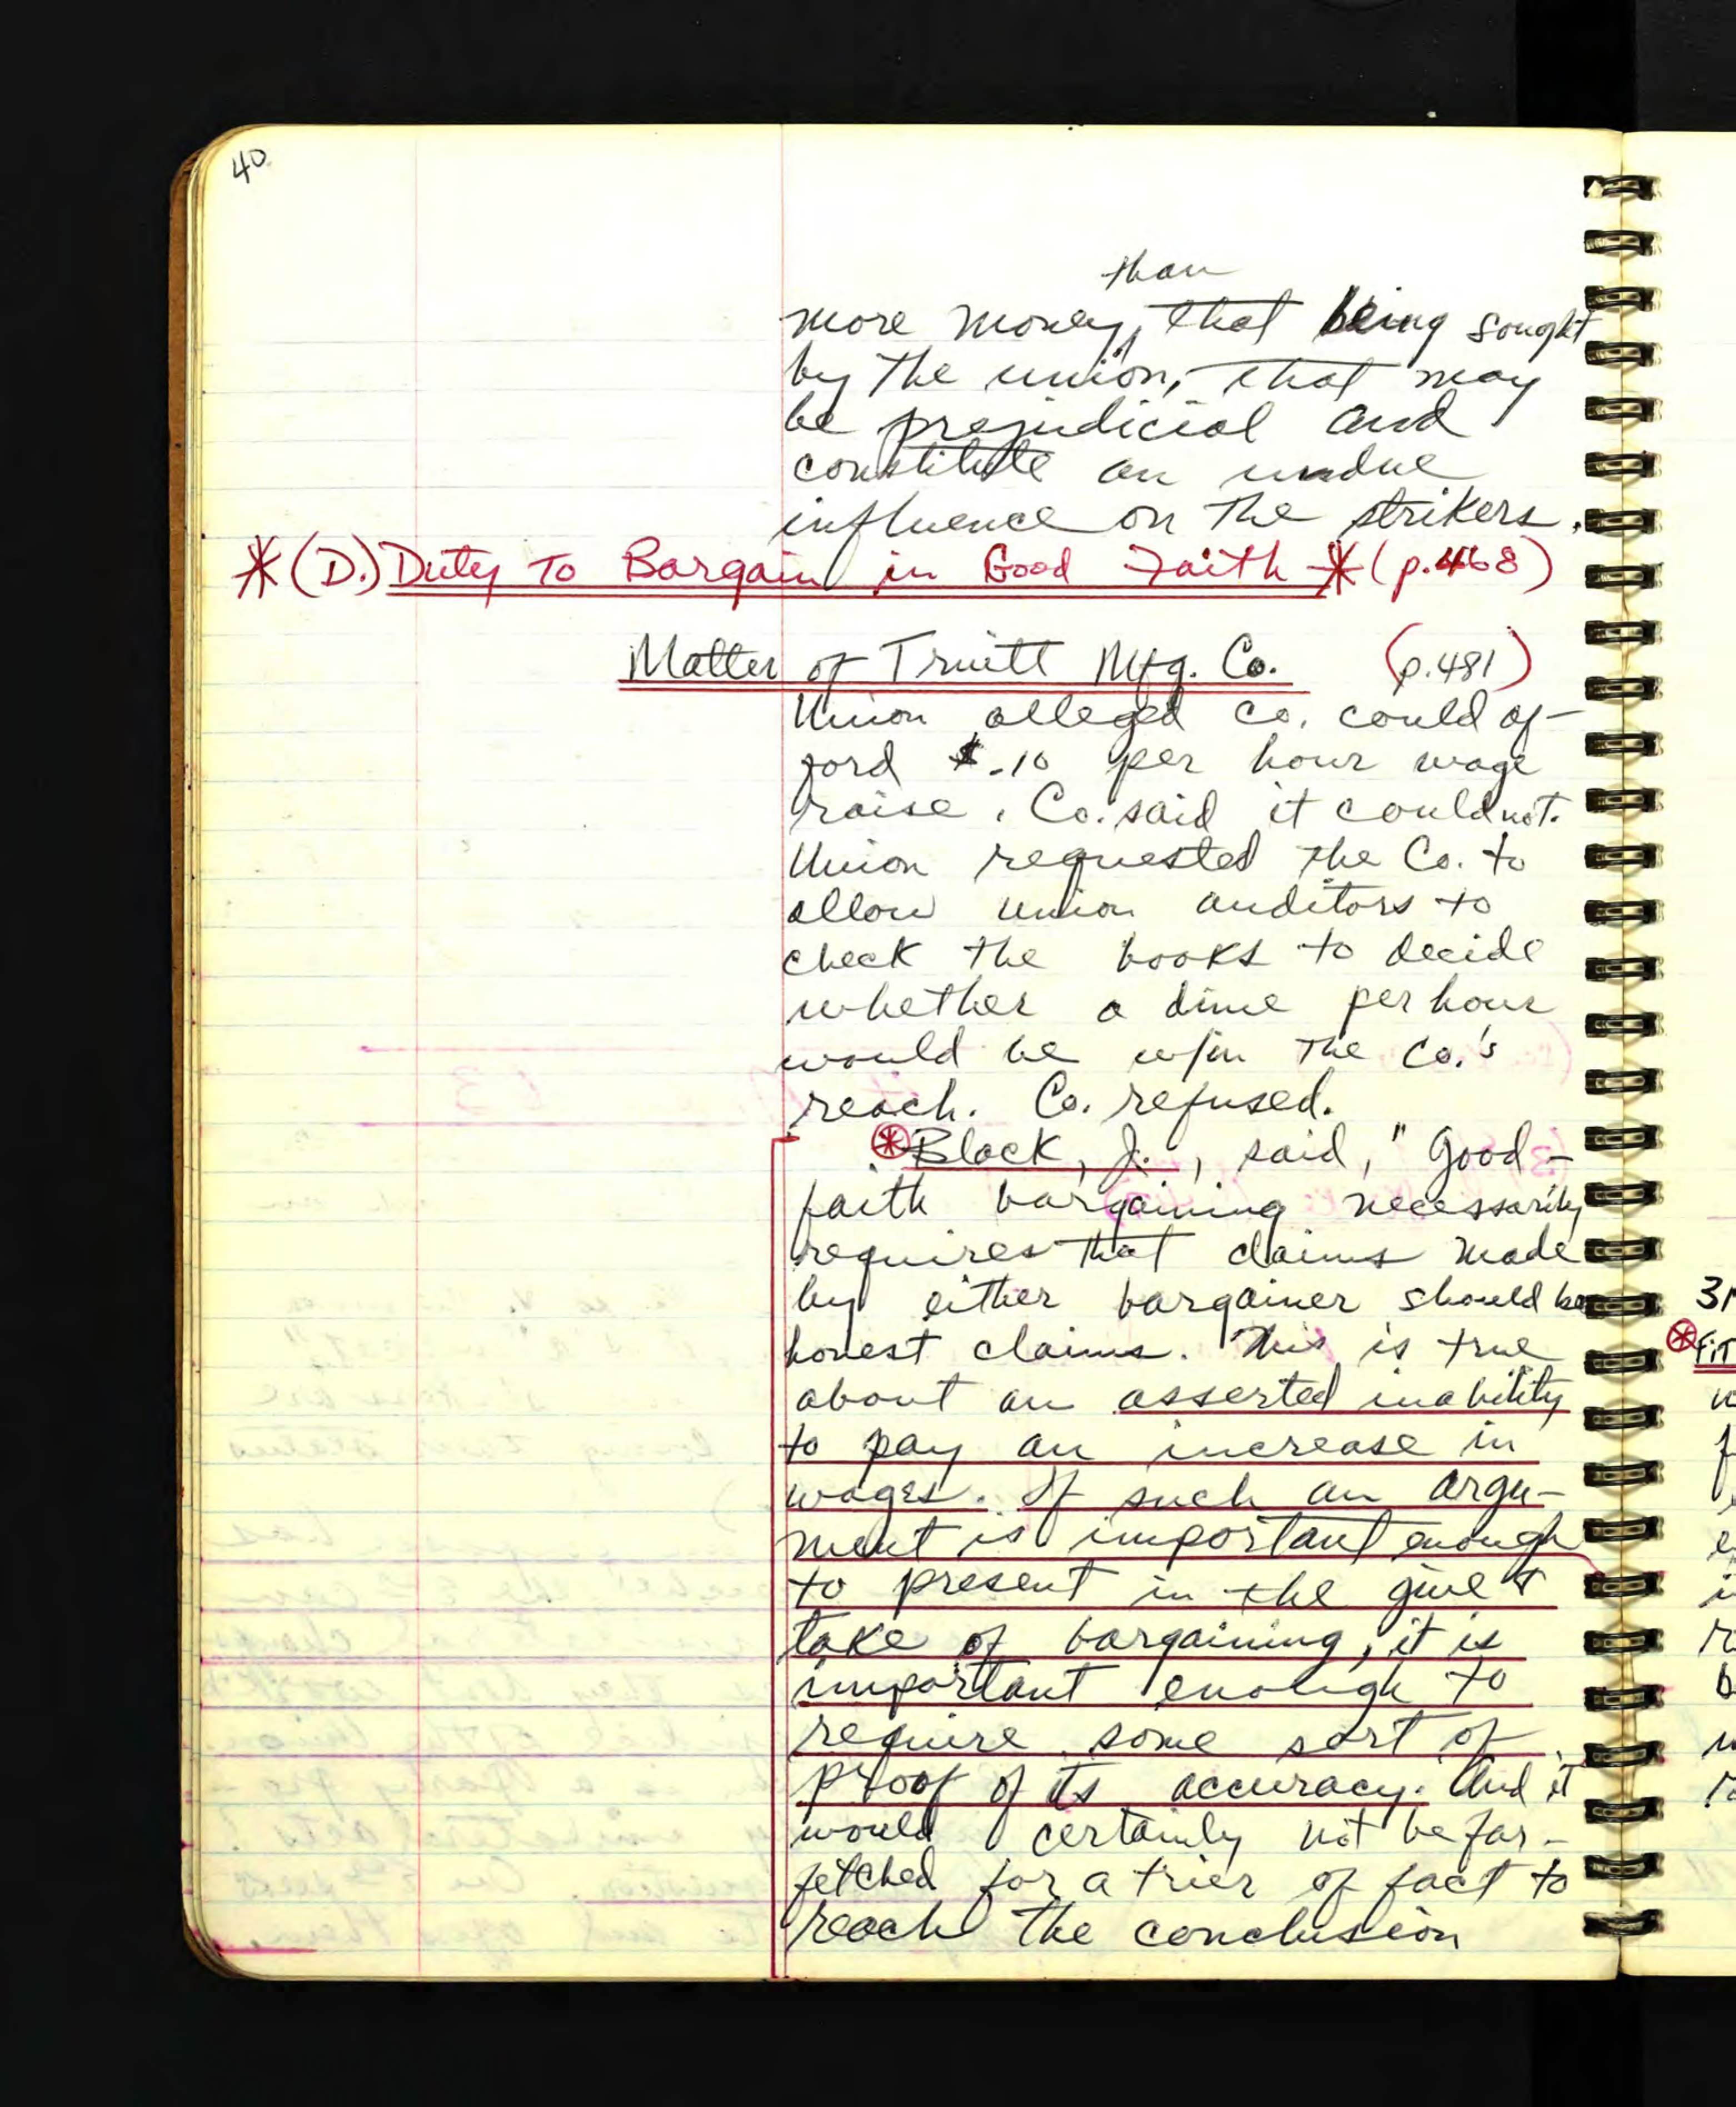 40
than
more money, that being sought
by the union, that may
be prejudicial and
constitute an undue
influence on the strikers.
*(D.) Duty To Bargain in Good Faith * (p.468)
Matter of Truitt Mfg. Co. (p.481)
Union alleged co. could af-
ford $.10 per hour wage
raise. Co. said it could not.
Union requested the Co. to
allow union auditors to
check the books to decide
whether a dime per hour
would be w/in the Co.'s
reach. Co. refused.
* Black, J., said, "Good-
faith bargaining necessarily
requires that claims made
by either bargainer should be
honest claims. This is true
about an asserted inability
to pay an increase in
wages. If such an argu-
ment is important enough
to present in the give &
take of bargaining, it is
important enough to
require some sort of
proof of its accuracy. And it
would certainly not be far-
fetched for a trier of fact to
reach the conclusion